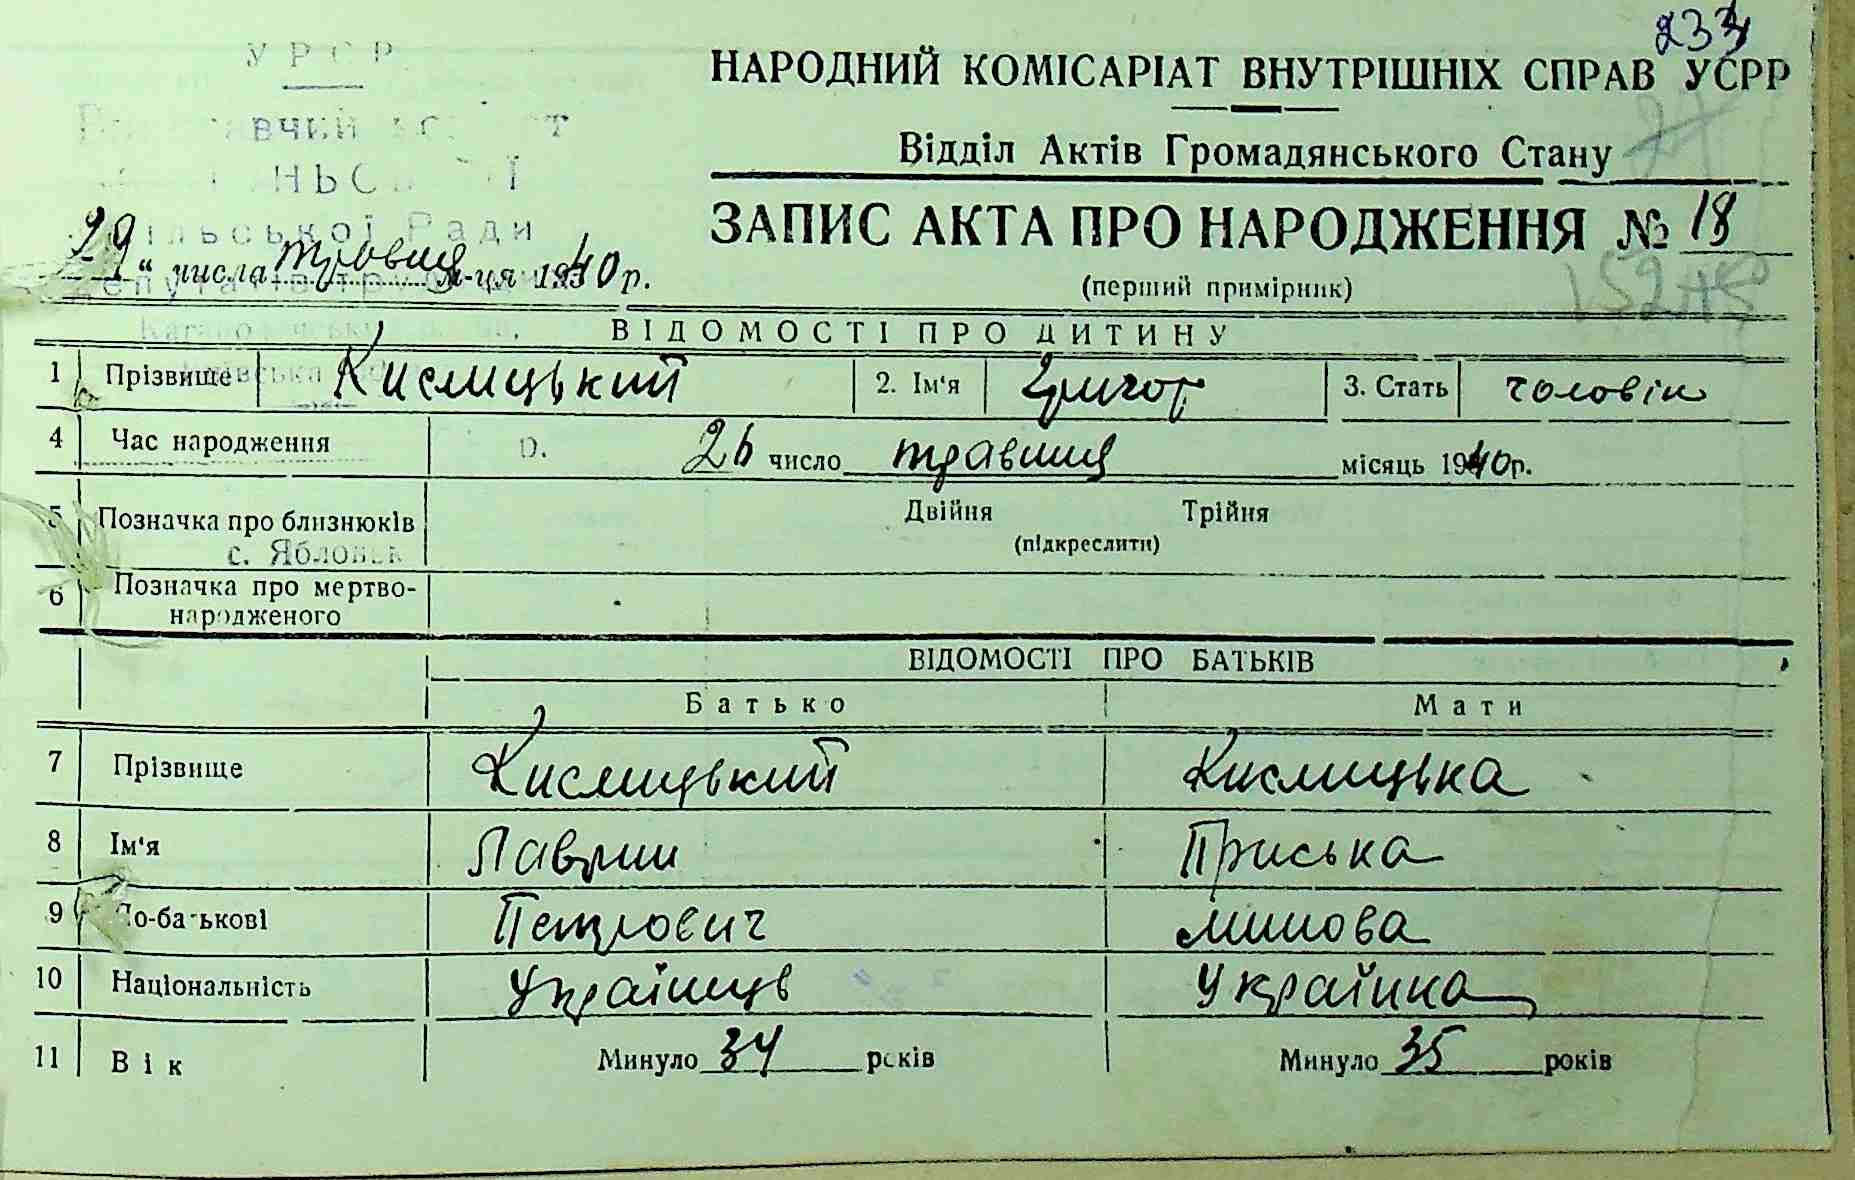 233
УРСР
НАРОДНИЙ КОМІСАРІАТ ВНУТРІШНІХ СПРАВ УСРР
Відділ Актів Громадянського Стану
ЗАПИС АКТА ПРО НАРОДЖЕННЯ № 18
(перший примірник)
Ради
29 “ числа травня м-ця 1940 р.
ВІДОМОСТІ ПРО ДИТИНУ
1 Прізвище Кислицький 2. Ім'я Григор 3. Стать чоловіч
4 Час народження 26 число травния місяць 1940 р.
5 Позначка про близнюків Двійня Трійня
(підкреслити)
с.
6 Позначка про мертво-
народженого
ВІДОМОСТІ ПРО БАТЬКІВ
Батько Мати
7 Прізвище Кислицький Кислицька
8 Ім'я Лаврин Приська
9 По-батькові Петрович
10 Національність Українць Українка
11 Вік Минуло 34 років Минуло 35 років